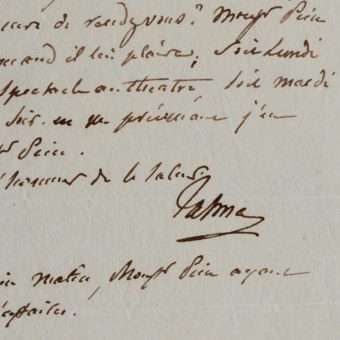 de rendezvous? Mons^r Pein
quand il lui plaira, Soit Lundi
Spectacle au theatre, soit mardi
Soir. en me prévenant j'en
Pein.
l'honneur de le saluer.
Talma
matin, Mons^r Pein ayant
d'affaires.